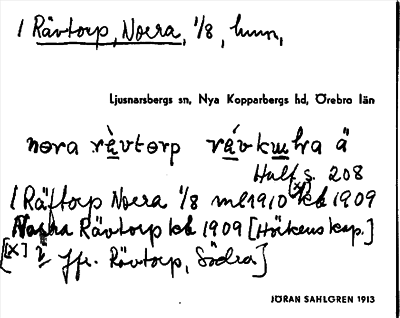 1 Rävtorp, Norra, 1/8, hmn,
Ljusnarsbergs sn, Nya Kopparbergs hd, Örebro län
nora rävtorp rávkuḷra ä
Hult s. 208
1 Räftorp Norra 1/8 ml 1910 [x] kb 1909
Norra Rävtorp kb 1909 [Hörkens kap.]
[x] jfr. Rävtorp, Södra]
JÖRAN SAHLGREN 1913